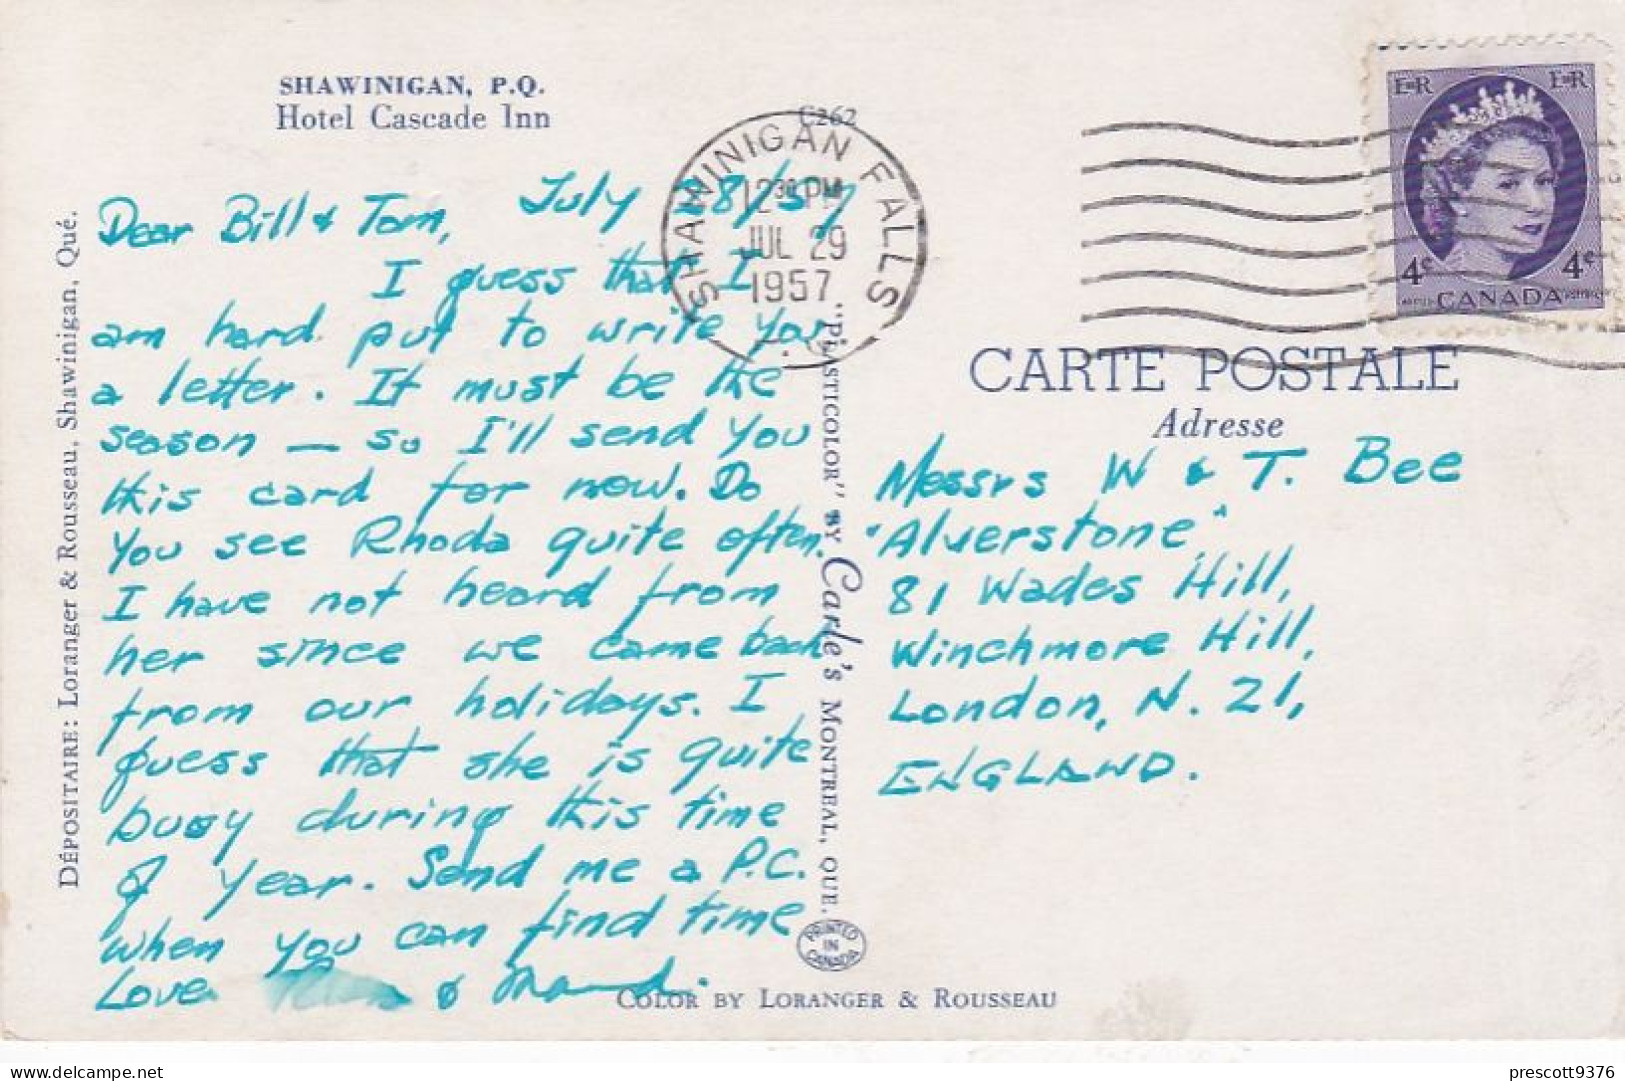 SHAWINIGAN, P.Q.
Hotel Cascade Inn
C262
SHAWINIGAN FALLS
12 30 PM
JUL 29
1957
July 28/57
Dear Bill & Tom,
I guess that I
am hard put to write you
a letter. It must be the
season — so I'll send you
this card for now. Do
you see Rhoda quite often.
I have not heard from
her since we came back
from our holidays. I
guess that she is quite
busy during this time
of year. Send me a P.C.
when you can find time
Love &
DÉPOSITAIRE: Loranger & Rousseau, Shawinigan, Qué.
"PLASTICOLOR" BY Carle's MONTREAL, QUE.
PRINTED
IN
CANADA
COLOR BY LORANGER & ROUSSEAU
EIIR EIIR
4¢ 4¢
CANADA
CARTE POSTALE
Adresse
Messrs W & T. Bee
"Alverstone"
81 Wades Hill,
Winchmore Hill,
London, N. 21,
ENGLAND.
prescott9376